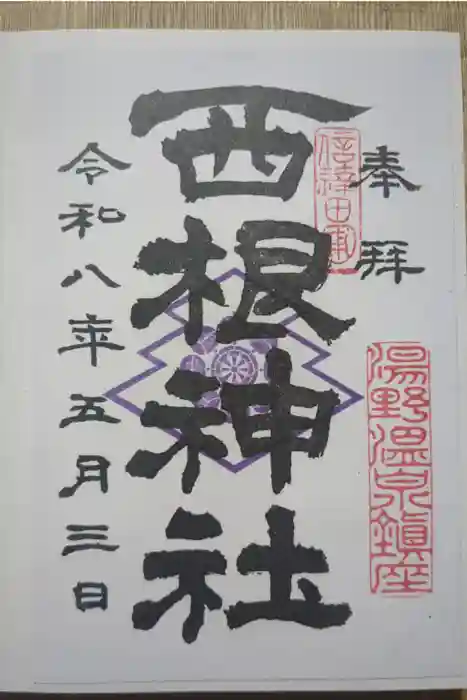 奉拝
湯野温泉鎮座
西根神社
令和八年五月三日